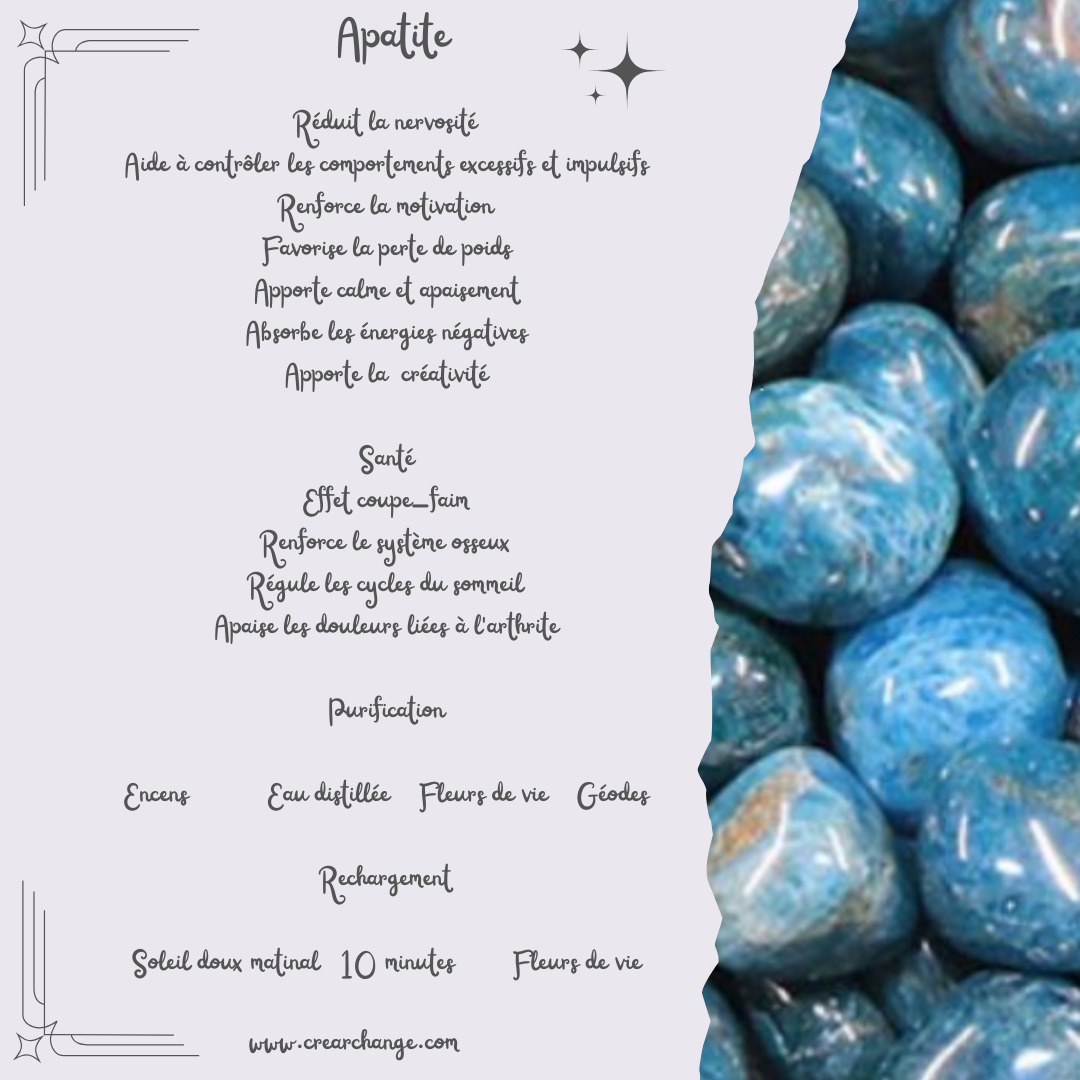 Apatite
Réduit la nervosité
Aide à contrôler les comportements excessifs et impulsifs
Renforce la motivation
Favorise la perte de poids
Apporte calme et apaisement
Absorbe les énergies négatives
Apporte la créativité
Santé
Effet coupe_faim
Renforce le système osseux
Régule les cycles du sommeil
Apaise les douleurs liées à l'arthrite
Purification
Encens Eau distillée Fleurs de vie Géodes
Rechargement
Soleil doux matinal 10 minutes Fleurs de vie
www.crearchange.com